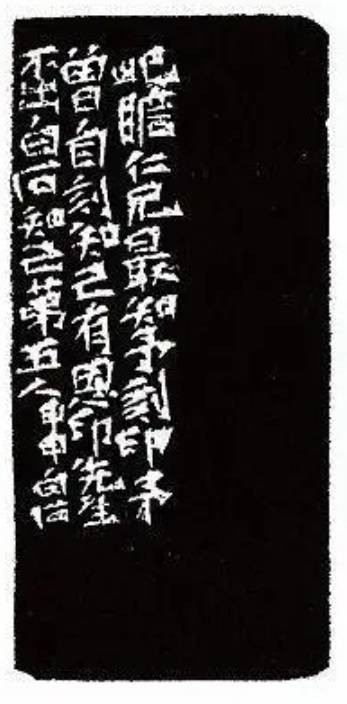 屺瞻仁兄最知予刻印予
曾自刻知己有恩印先生
不出白石知己第五人甲申白石